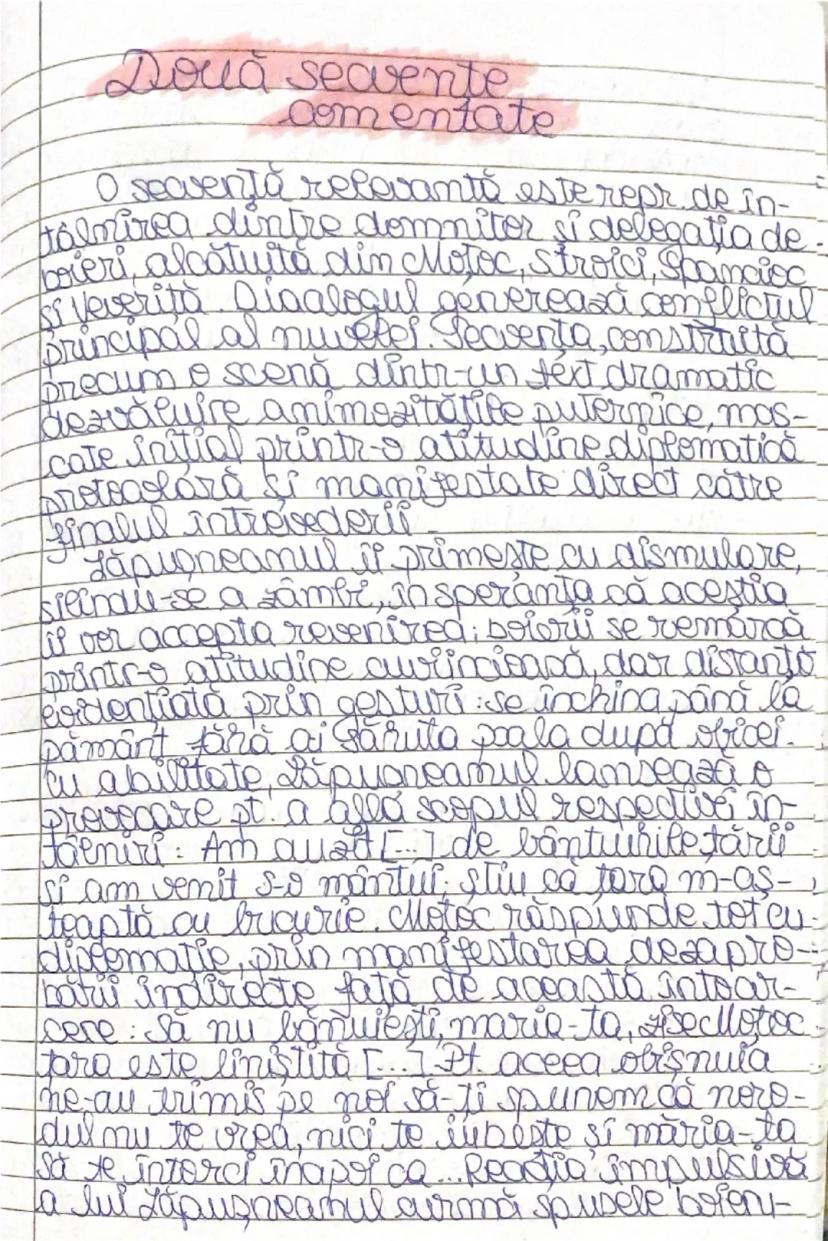 Două secvențe
comentate
O secvență relevantă este repr. de în-
tâlnirea dintre domnitor și delegația de
boieri, alcătuită din Moțoc, Stroici, Spancioc
și Veveriță. Diaalogul generează conflictul
principal al nuvelei. Secvența, construită
precum o scenă dintr-un text dramatic
dezvăluire animozitățile puternice, mas-
cate inițial printr-o atitudine diplomatică
protocolară și manifestate direct către
finalul întrevederii.
Lăpușneanul îi primește cu dismulare,
silindu-se a zâmbi, în speranța că aceștia
îi vor accepta revenirea; boierii se remarcă
printr-o atitudine cuviincioasă, dar distanță
evidențiată prin gesturi: se închina până la
pământ fără ai săruta poala după obicei.
Cu abilitate, Lăpușneamul lansează o
provocare pt. a afla scopul respectivei în-
tâlniri: Am auzit [...] de bântuirile țării
și am venit s-o mântui; știu că țara m-aș-
teaptă cu bucurie. Moțoc răspunde tot cu
diplomație, prin manifestarea dezapro-
bării indirecte față de această întoar-
cere: Să nu bănuiești, maria-ta, zise Moțoc
țara este liniștită [...] Pt. aceea obișnuia
ne-au trimis pe noi să-ți spunem că noro-
dul nu te vrea, nici te iubește și măria-ta
să te întorci înapoi ca... Reacția impulsivă
a lui Lăpușneamul curmă spusele boieru-